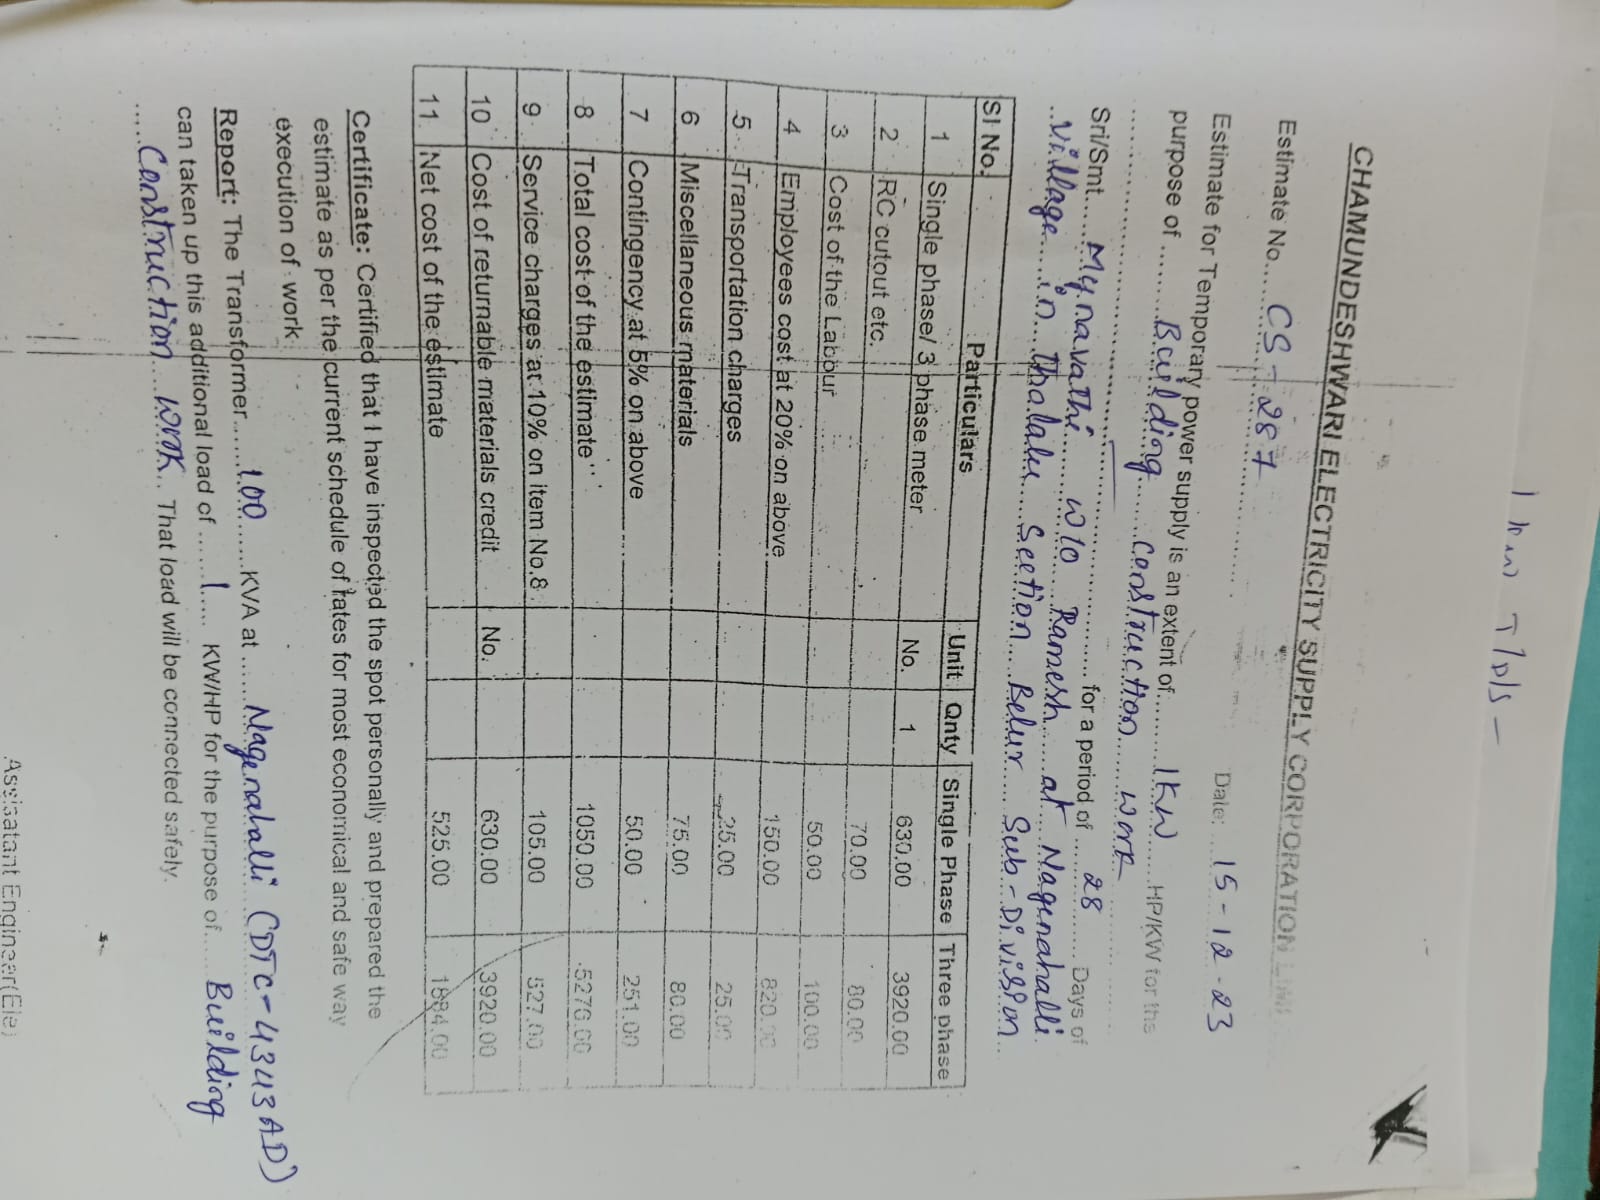 1 KW T/D/S -
CHAMUNDESHWARI ELECTRICITY SUPPLY CORPORATION
Estimate No..... CS - 287
Date: ... 15-12-23
Estimate for Temporary power supply is an extent of ........ 1KW ...... HP/KW for the
purpose of ........ Building ...... construction ..... work
.................................................. for a period of ........ 28 ........ Days of
Sri/Smt.... Mynavathi ...... w/o .... Ramesh ..... at ... Nagenahalli
..village.....in....Thalalu.....Section.....Belur....Sub-Division..
Sl No. Particulars Unit Qnty Single Phase Three phase
1 Single phase/ 3 phase meter No. 1 630.00 3920.00
2 RC cutout etc. 70.00 80.00
3 Cost of the Labour 50.00 100.00
4 Employees cost at 20% on above 150.00 820.00
5 Transportation charges 25.00 25.00
6 Miscellaneous materials 75.00 80.00
7 Contingency at 5% on above 50.00 251.00
8 Total cost of the estimate 1050.00 5276.00
9 Service charges at 10% on item No.8 105.00 527.00
10 Cost of returnable materials credit No. 630.00 3920.00
11 Net cost of the estimate 525.00 1884.00
Certificate: Certified that I have inspected the spot personally and prepared the
estimate as per the current schedule of rates for most economical and safe way
execution of work
Report: The Transformer....... 100 ......KVA at ....... Nagenahalli (DTC-4343AD)
can taken up this additional load of ....... 1 ..... KW/HP for the purpose of.... Building
.....Construction....work.. That load will be connected safely.
Assisatant Engineer(Ele)